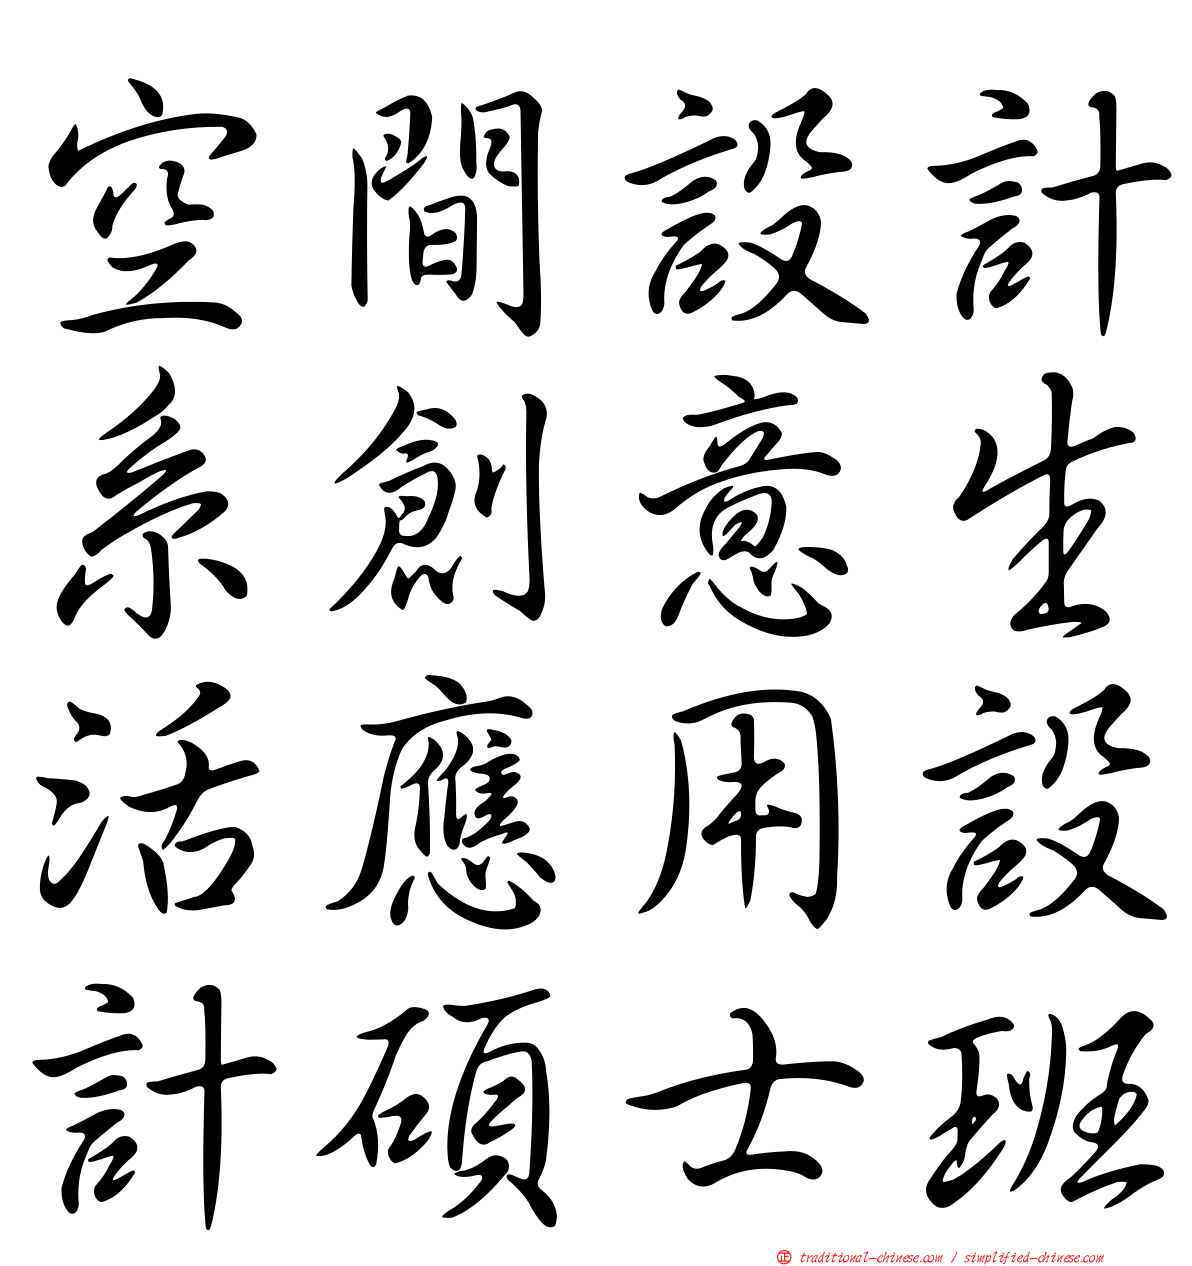 空間設計
系創意生
活應用設
計碩士班
正 traditional-chinese.com / simplified-chinese.com